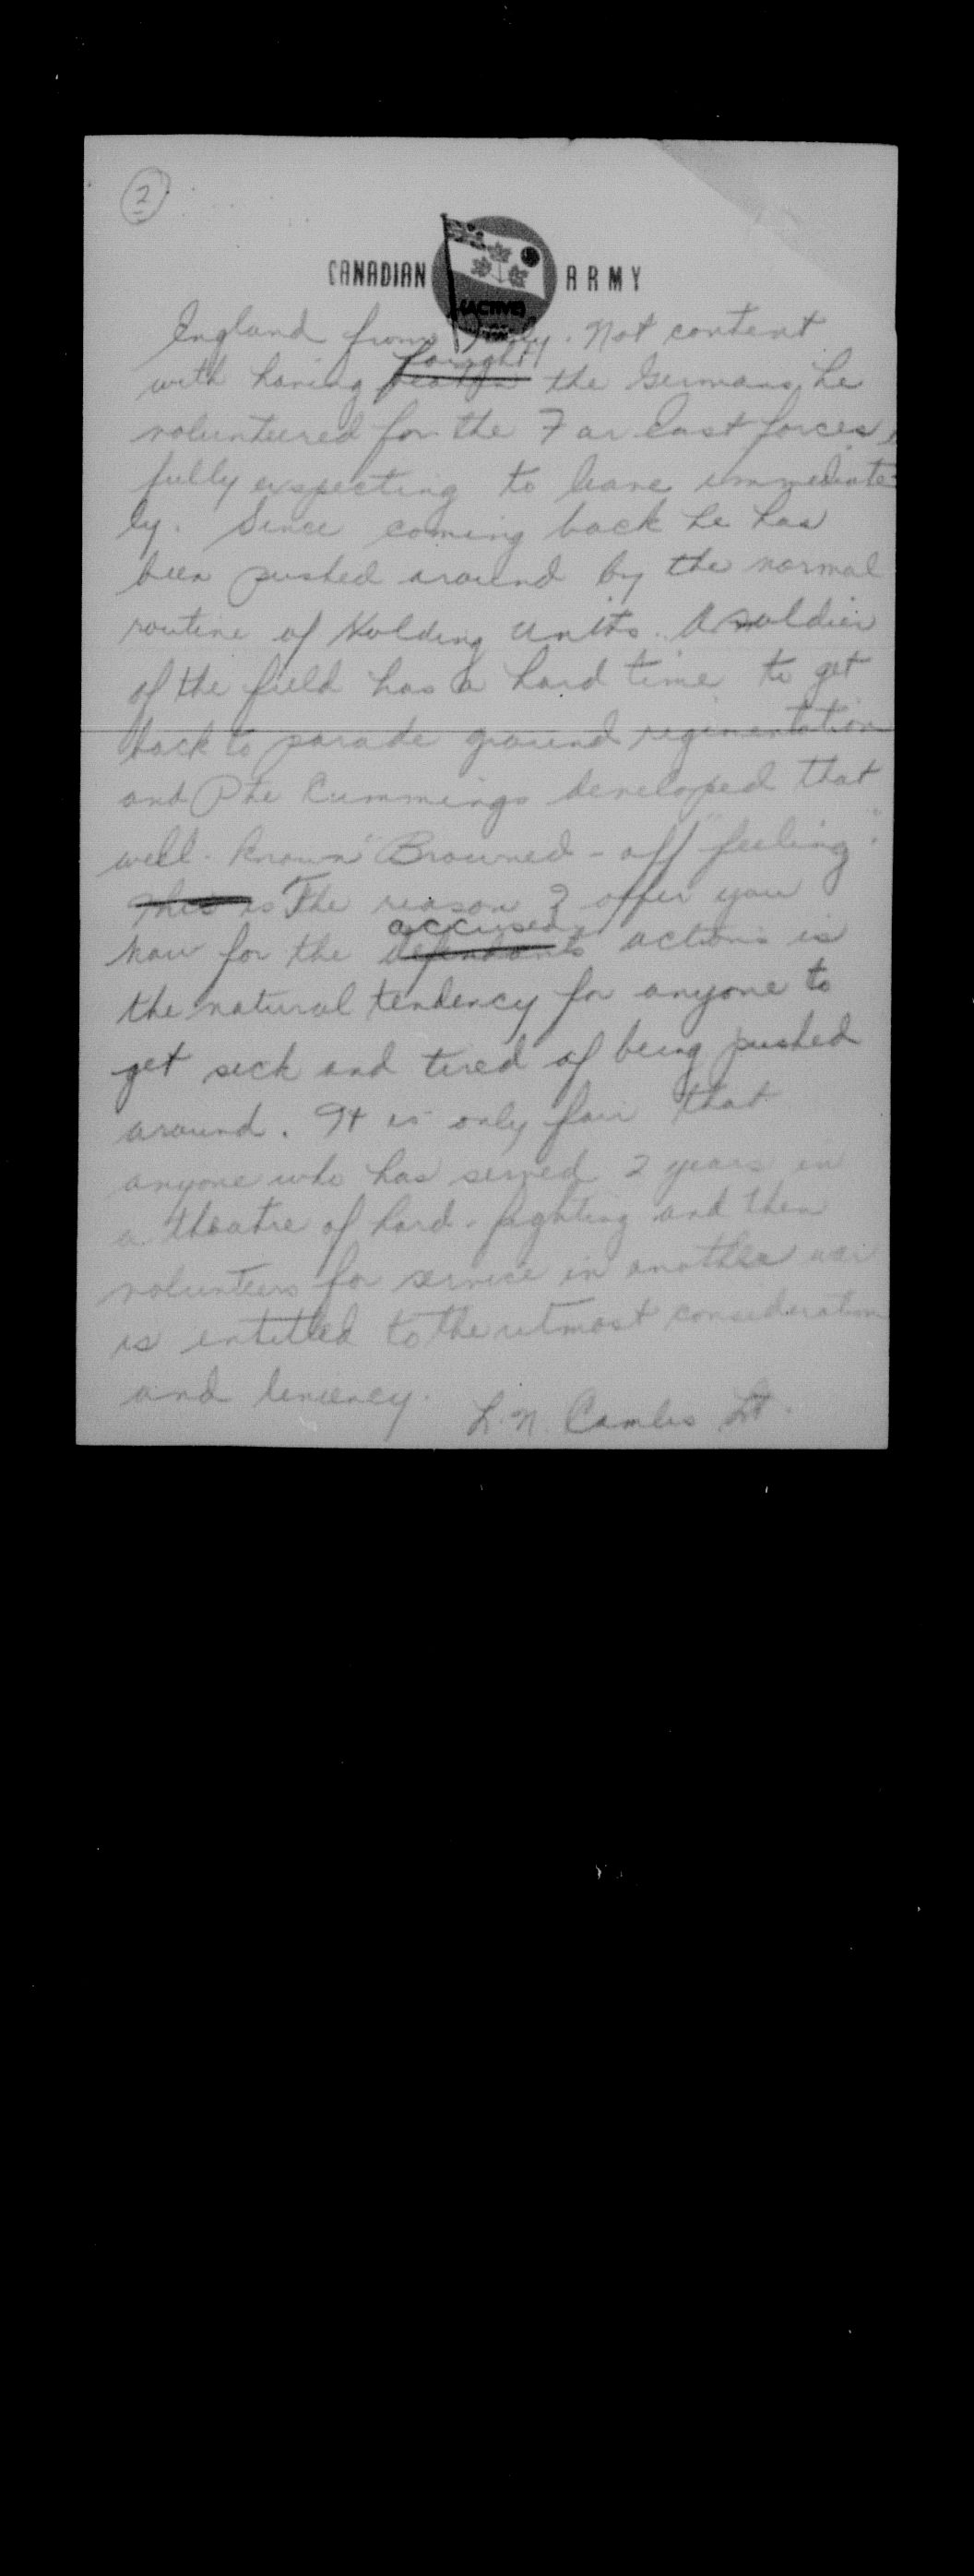 2
CANADIAN ARMY
(ACTIVE)
England from Italy. Not content
with having beaten fought the Germans, he
volunteered for the Far East forces
fully expecting to leave immediate-
ly. Since coming back he has
been pushed around by the normal
routine of Holding Units. A soldier
of the field has a hard time to get
back to parade ground regimentation
and Pte Cummings developed that
well-known "Browned-off" feeling.
This is The reason I offer you
now for the defendants accused actions is
the natural tendency for anyone to
get sick and tired of being pushed
around. It is only fair that
anyone who has served 2 years in
a theatre of hard-fighting and then
volunteers for service in another war
is entitled to the utmost consideration
and leniency.
L. N. Lt.